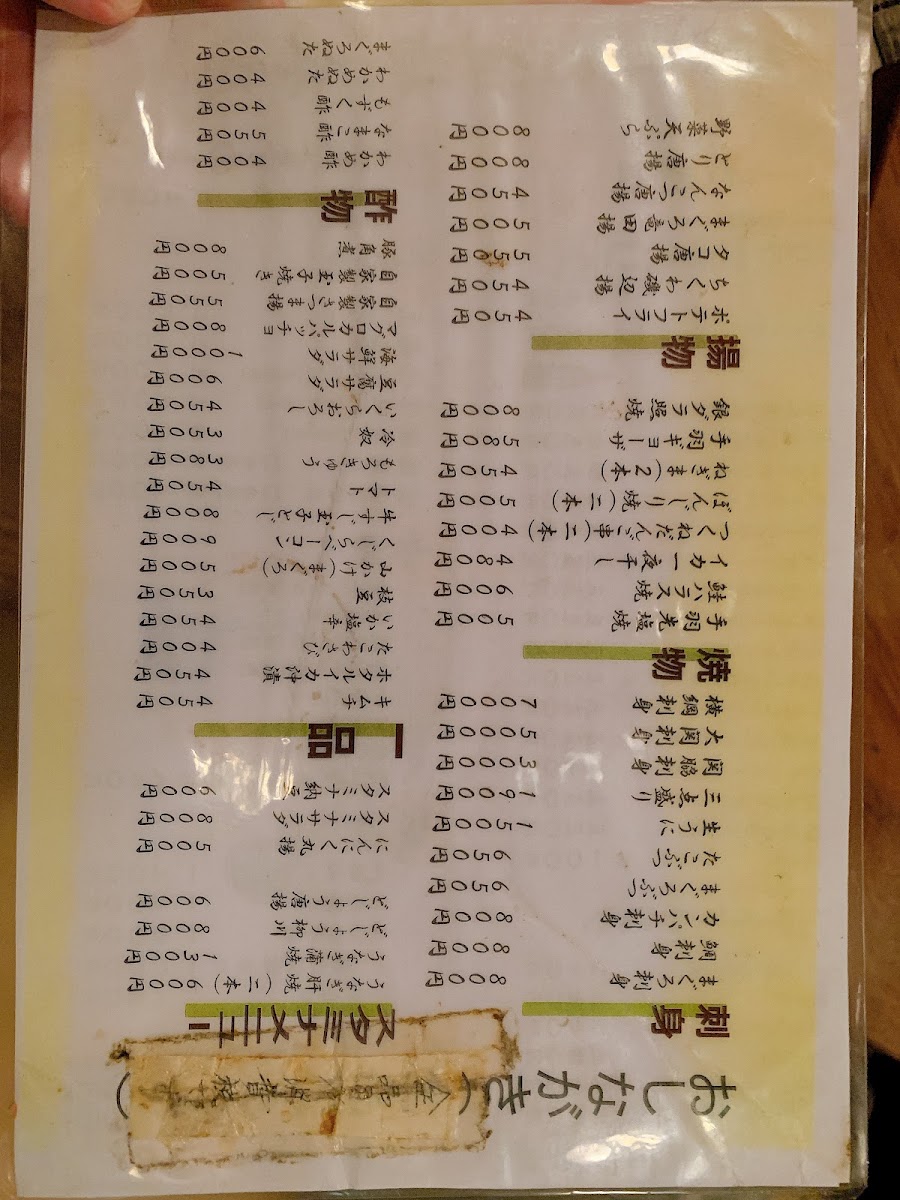 おしながき（全品
刺身
まぐろ刺身 800円
鯛刺身 800円
カンパチ刺身 800円
まぐろぶつ 650円
たこぶつ 650円
生うに 1500円
三点盛り 1900円
関脇刺身 3000円
大関刺身 5000円
横綱刺身 7000円
焼物
手羽先塩焼 500円
鮭ハラス焼 600円
イカ一夜干し 480円
つくねだんご串(二本) 400円
ぼんじり焼(二本) 500円
ねぎま(2本) 450円
手羽ギョーザ 580円
銀ダラ照焼 800円
揚物
ポテトフライ 450円
ちくわ磯辺揚 450円
タコ唐揚 550円
まぐろ竜田揚 500円
なんこつ唐揚 450円
とり唐揚 800円
野菜天ぷら 800円
スタミナメニュー
うなぎ肝焼(二本) 600円
うなぎ蒲焼 1300円
どじょう柳川 800円
どじょう唐揚 600円
にんにく丸揚 500円
スタミナサラダ 800円
スタミナ納豆 600円
一品
キムチ 450円
ホタルイカ沖漬 450円
たこわさび 400円
いか塩辛 450円
枝豆 350円
山かけ(まぐろ) 500円
くじらベーコン 900円
牛すじ玉子とじ 800円
トマト 450円
もろきゅう 380円
冷奴 350円
いくらおろし 450円
豆腐サラダ 600円
海鮮サラダ 1000円
マグロカルパッチョ 800円
自家製さつま揚 550円
自家製玉子焼き 500円
豚角煮 800円
酢物
わかめ酢 400円
なまこ酢 550円
もずく酢 400円
わかめぬた 400円
まぐろぬた 600円